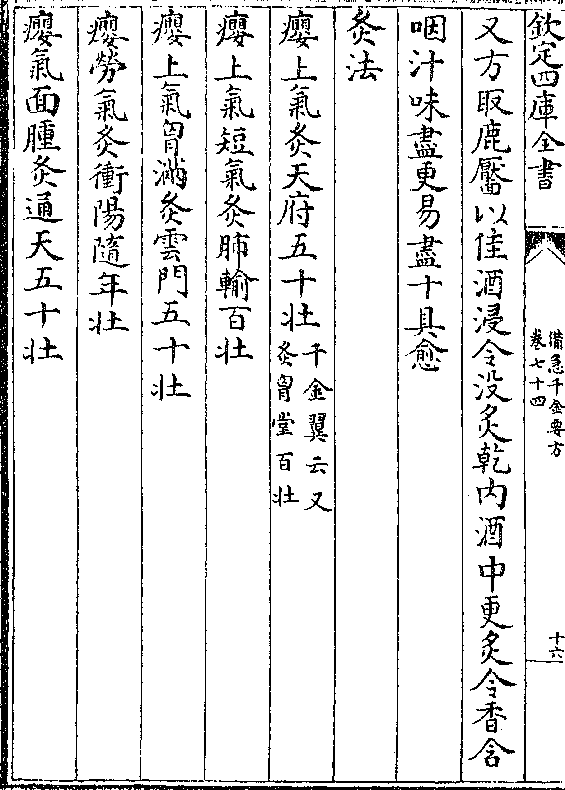 欽定四庫全書
備急千金要方
卷七十四
十六
又方取鹿靨以佳酒浸令没炙乾内酒中更炙令香含
咽汁味盡更易盡十具愈
灸法
癭上氣灸天府五十壯千金翼云又
灸胷堂百壯
癭上氣短氣灸肺輸百壯
癭上氣胷滿灸雲門五十壯
癭勞氣灸衝陽隨年壯
癭氣面腫灸通天五十壯